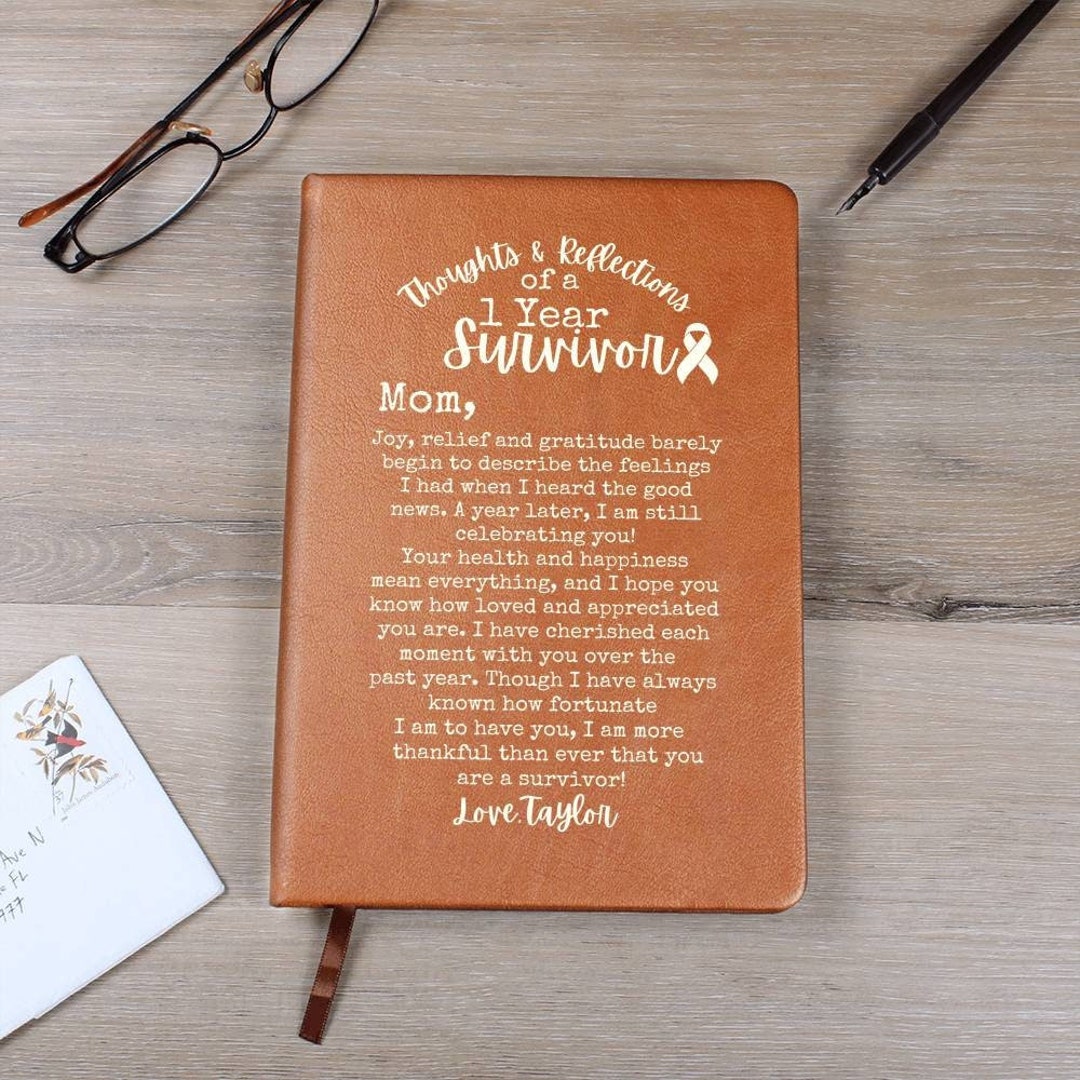 Thoughts & Reflections
of a
1 Year
Survivor
Mom,
Joy, relief and gratitude barely
begin to describe the feelings
I had when I heard the good
news. A year later, I am still
celebrating you!
Your health and happiness
mean everything, and I hope you
know how loved and appreciated
you are. I have cherished each
moment with you over the
past year. Though I have always
known how fortunate
I am to have you, I am more
thankful than ever that you
are a survivor!
Love, Taylor
John James Audubon
Ave N
FL
977